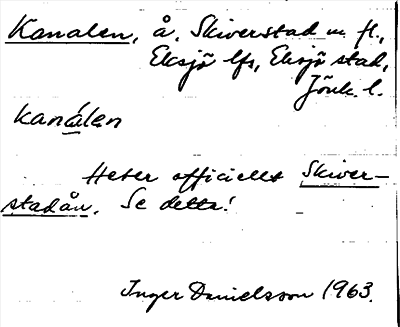 Kanalen, å, Skiverstad m. fl.,
Eksjö lfs, Eksjö stad,
Jönk. l.
kanálen
Heter officiellt Skiver-
stadån. Se detta!
Inger Danielsson 1963.